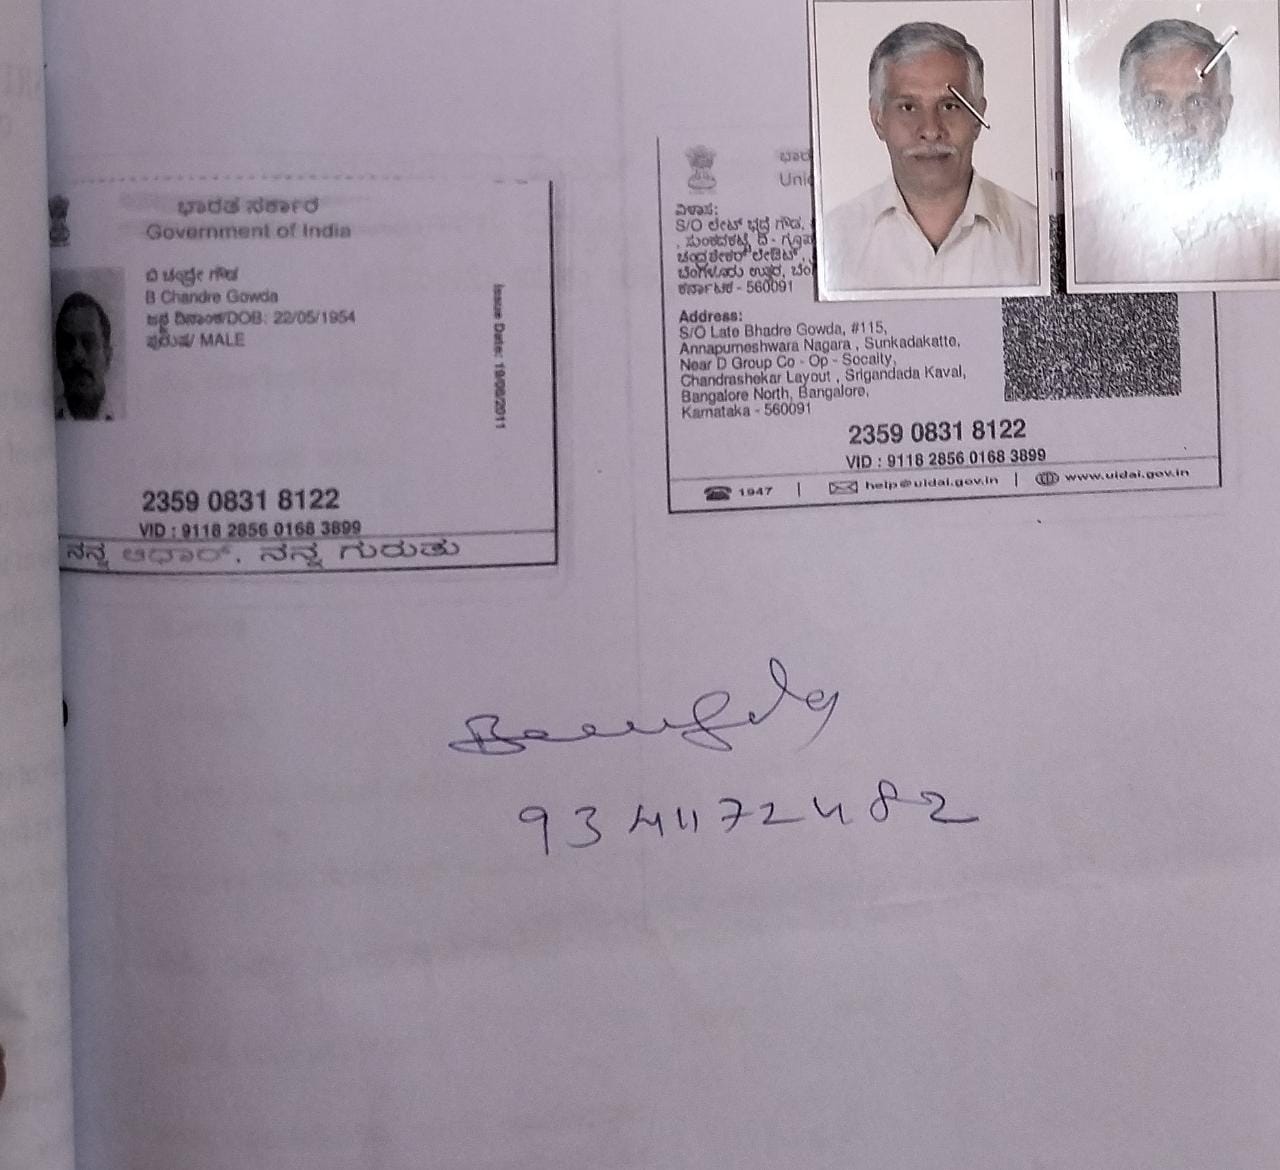 ಭಾರತ ಸರ್ಕಾರ
Government of India
ಬಿ ಚಂದ್ರೇ ಗೌಡ
B Chandre Gowda
ಜನ್ಮ ದಿನಾಂಕ/DOB: 22/05/1954
ಪುರುಷ/ MALE
Issue Date: 19/06/2011
2359 0831 8122
VID : 9118 2856 0168 3899
ನನ್ನ ಆಧಾರ್, ನನ್ನ ಗುರುತು
ವಿಳಾಸ:
S/O ಲೇಟ್ ಭದ್ರೆ ಗೌಡ,
, ಸುಂಕದಕಟ್ಟೆ, ಡಿ - ಗ್ರೂಪ
ಚಂದ್ರಶೇಕರ್ ಲೇಔಟ್,
ಬೆಂಗಳೂರು ಉತ್ತರ,
ಕರ್ನಾಟಕ - 560091
Address:
S/O Late Bhadre Gowda, #115,
Annapurneshwara Nagara , Sunkadakatte,
Near D Group Co - Op - Socaity,
Chandrashekar Layout , Srigandada Kaval,
Bangalore North, Bangalore,
Karnataka - 560091
2359 0831 8122
VID : 9118 2856 0168 3899
1947 | help@uidai.gov.in | www.uidai.gov.in
9341172482